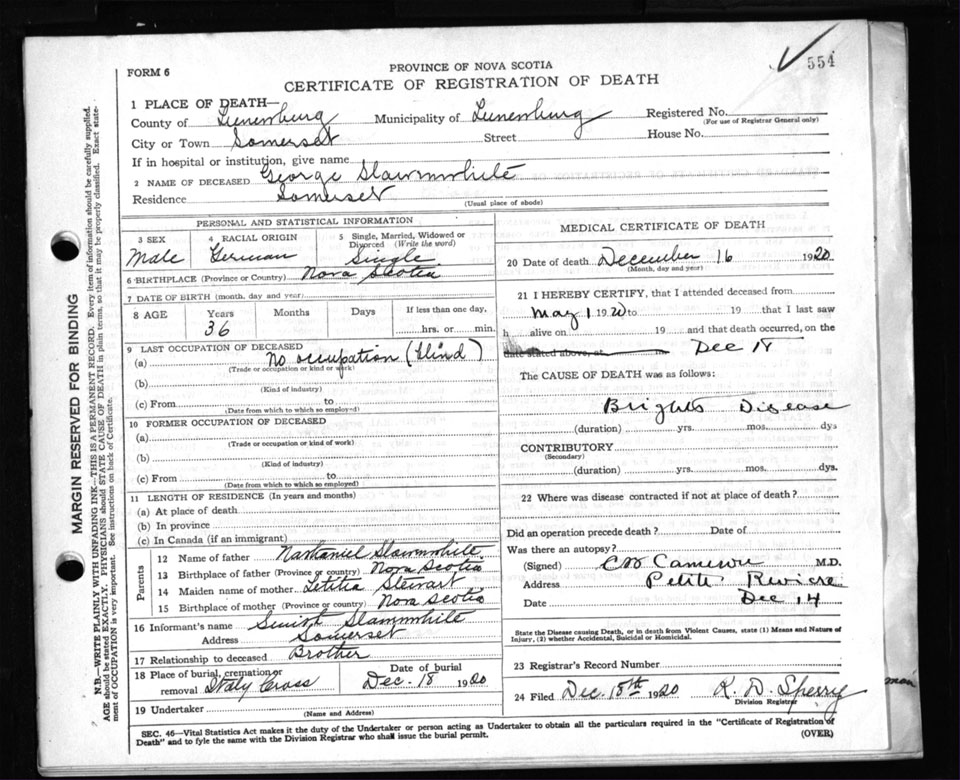 554
FORM 6
PROVINCE OF NOVA SCOTIA
CERTIFICATE OF REGISTRATION OF DEATH
1 PLACE OF DEATH—
County of Lunenburg Municipality of Lunenburg Registered No.
(For use of Registrar General only)
City or Town Somerset Street House No.
If in hospital or institution, give name
2 NAME OF DECEASED George Slawnwhite
Residence Somerset
(Usual place of abode)
PERSONAL AND STATISTICAL INFORMATION
3 SEX 4 RACIAL ORIGIN 5 Single, Married, Widowed or Divorced (Write the word)
Male German Single
6 BIRTHPLACE (Province or Country) Nova Scotia
7 DATE OF BIRTH (month, day and year)
8 AGE Years Months Days If less than one day,
36 hrs. or min.
9 LAST OCCUPATION OF DECEASED
(a) No occupation (blind)
(Trade or occupation or kind of work)
(b)
(Kind of industry)
(c) From to
(Date from which to which so employed)
10 FORMER OCCUPATION OF DECEASED
(a)
(Trade or occupation or kind of work)
(b)
(Kind of industry)
(c) From to
(Date from which to which so employed)
11 LENGTH OF RESIDENCE (In years and months)
(a) At place of death
(b) In province
(c) In Canada (if an immigrant)
Parents
12 Name of father Nathaniel Slawnwhite
13 Birthplace of father (Province or country) Nova Scotia
14 Maiden name of mother Letitia Stewart
15 Birthplace of mother (Province or country) Nova Scotia
16 Informant's name Slawnwhite
Address Somerset
17 Relationship to deceased Brother
18 Place of burial, cremation or removal Italy Cross Date of burial Dec. 18 1920
19 Undertaker
(Name and Address)
MEDICAL CERTIFICATE OF DEATH
20 Date of death December 16 1920
(Month, day and year)
21 I HEREBY CERTIFY, that I attended deceased from
May 1 1920 to 19 that I last saw
h alive on 19 and that death occurred, on the
date stated above, at m Dec 18
The CAUSE OF DEATH was as follows:
Brights Disease
(duration) yrs. mos. dys
CONTRIBUTORY
(Secondary)
(duration) yrs. mos. dys.
22 Where was disease contracted if not at place of death?
Did an operation precede death? Date of
Was there an autopsy?
(Signed) Cameron M.D.
Address Petite Riviere
Date Dec 14
State the Disease causing Death, or in death from Violent Causes, state (1) Means and Nature of Injury, (2) whether Accidental, Suicidal or Homicidal.
23 Registrar's Record Number
24 Filed Dec. 18th 1920 R. D. Sperry
Division Registrar
SEC. 46—Vital Statistics Act makes it the duty of the Undertaker or person acting as Undertaker to obtain all the particulars required in the "Certificate of Registration of
Death" and to fyle the same with the Division Registrar who shall issue the burial permit. (OVER)
MARGIN RESERVED FOR BINDING
N.B.—WRITE PLAINLY WITH UNFADING INK—THIS IS A PERMANENT RECORD. Every item of information should be carefully supplied.
AGE should be stated EXACTLY. PHYSICIANS should STATE CAUSE OF DEATH in plain terms, so that it may be properly classified. Exact state-
ment of OCCUPATION is very important. See instructions on back of Certificate.